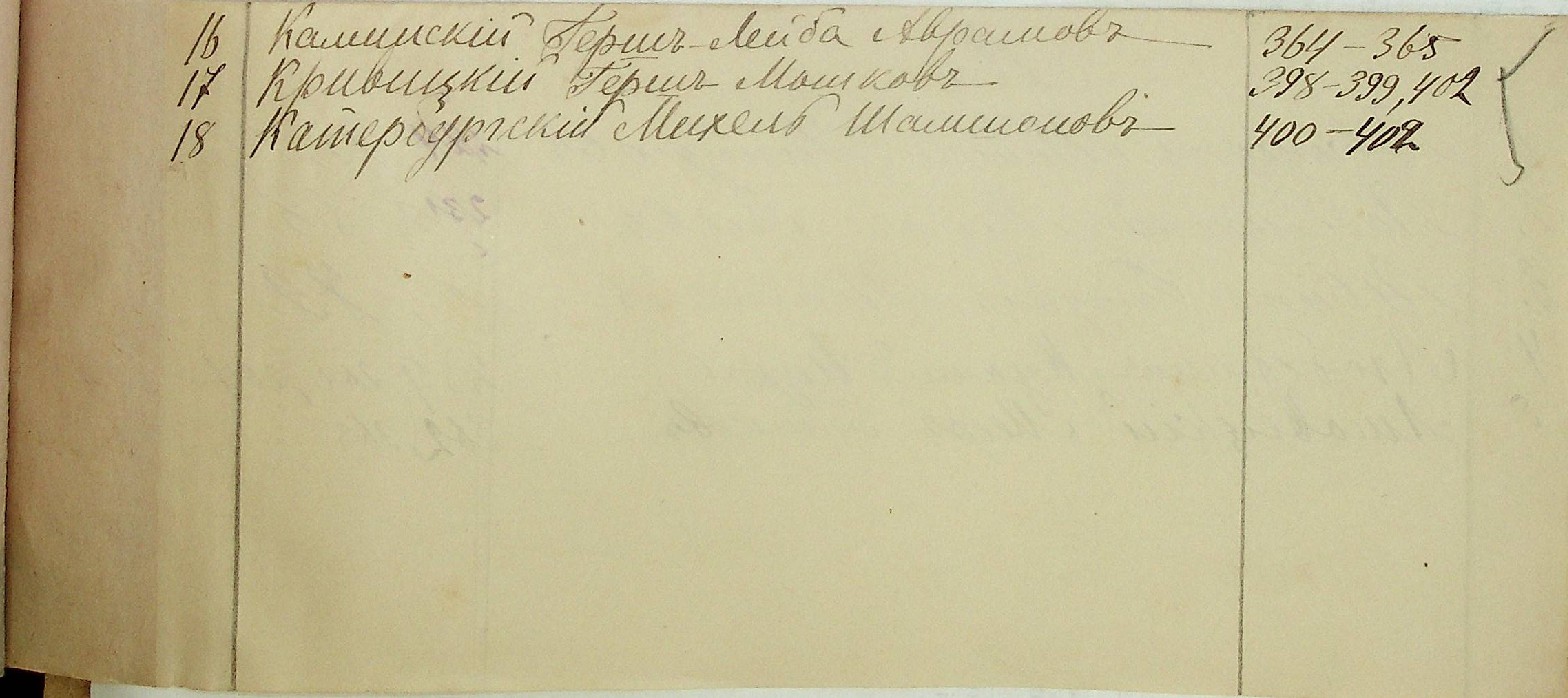 16 Каминскій Гершъ-Лейба Абрамовъ 364-365
17 Кривицкій Гершъ Мошковъ 398-399, 402
18 Катербургскій Михель Шамшоновъ 400-402
231